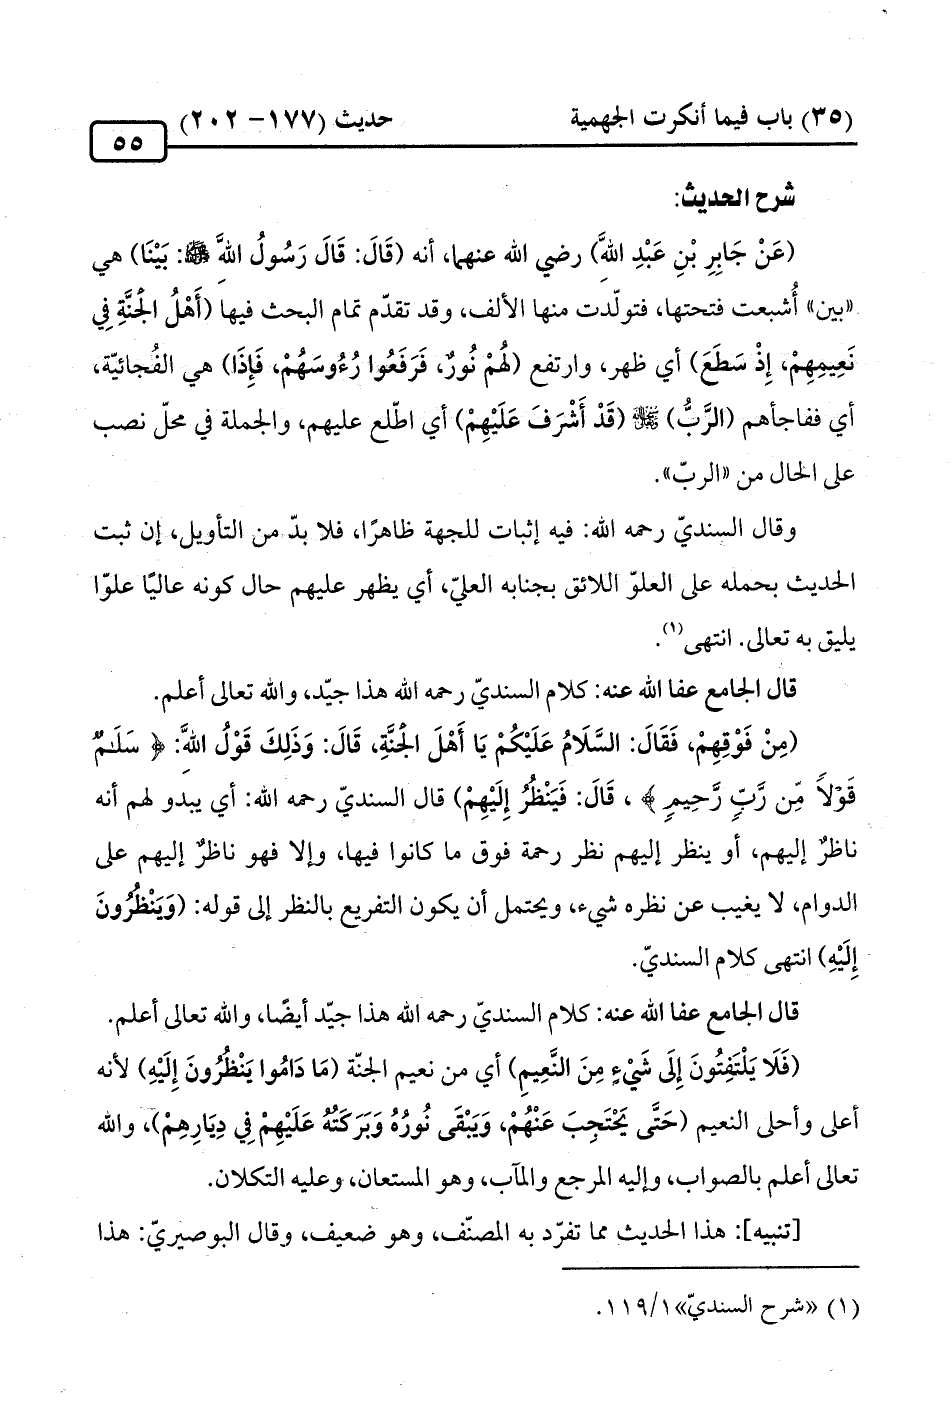 (٣٥) باب فيما أنكرت الجهمية حديث (١٧٧- ٢٠٢)
٥٥
شرح الحديث:
(عَنْ جَابِرِ بْنِ عَبْدِ اللهَِّ) رضي الله عنهما، أنه (قَالَ: قَالَ رَسُولُ اللهَِّ ﷺ: بَيْنَا) هي
«بين» أُشبعت فتحتها، فتولّدت منها الألف، وقد تقدّم تمام البحث فيها (أَهْلُ الْجَنَّةِ فِي
نَعِيمِهِمْ، إِذْ سَطَعَ) أي ظهر، وارتفع (لَهُمْ نُورٌ، فَرَفَعُوا رُءُوسَهُمْ، فَإِذَا) هي الفُجائيّة،
أي ففاجأهم (الرَّبُّ) ﷻ (قَدْ أَشْرَفَ عَلَيْهِمْ) أي اطّلع عليهم، والجملة في محلّ نصب
على الحال من «الربّ».
وقال السنديّ رحمه الله: فيه إثبات للجهة ظاهرًا، فلا بدّ من التأويل، إن ثبت
الحديث بحمله على العلوّ اللائق بجنابه العليّ، أي يظهر عليهم حال كونه عاليًا علوّا
يليق به تعالى. انتهى(١).
قال الجامع عفا الله عنه: كلام السنديّ رحمه الله هذا جيّد، والله تعالى أعلم.
(مِنْ فَوْقِهِمْ، فَقَالَ: السَّلَامُ عَلَيْكُمْ يَا أَهْلَ الْجَنَّةِ، قَالَ: وَذَلِكَ قَوْلُ اللهَِّ: ﴿ سَلَـٰمٌ
قَوْلاً مِّن رَّبٍّ رَّحِيمٍ ﴾ ، قَالَ: فَيَنْظُرُ إِلَيْهِمْ) قال السنديّ رحمه الله: أي يبدو لهم أنه
ناظرٌ إليهم، أو ينظر إليهم نظر رحمة فوق ما كانوا فيها، وإلا فهو ناظرٌ إليهم على
الدوام، لا يغيب عن نظره شيء، ويحتمل أن يكون التفريع بالنظر إلى قوله: (وَيَنْظُرُونَ
إِلَيْهِ) انتهى كلام السنديّ.
قال الجامع عفا الله عنه: كلام السنديّ رحمه الله هذا جيّد أيضًا، والله تعالى أعلم.
(فَلَا يَلْتَفِتُونَ إِلَى شَيْءٍ مِنَ النَّعِيمِ) أي من نعيم الجنّة (مَا دَامُوا يَنْظُرُونَ إِلَيْهِ) لأنه
أعلى وأحلى النعيم (حَتَّى يَحْتَجِبَ عَنْهُمْ، وَيَبْقَى نُورُهُ وَبَرَكَتُهُ عَلَيْهِمْ فِي دِيَارِهِمْ)، والله
تعالى أعلم بالصواب، وإليه المرجع والمآب، وهو المستعان، وعليه التكلان.
[تنبيه]: هذا الحديث مما تفرّد به المصنّف، وهو ضعيف، وقال البوصيريّ: هذا
(١) «شرح السنديّ» ١١٩/١.